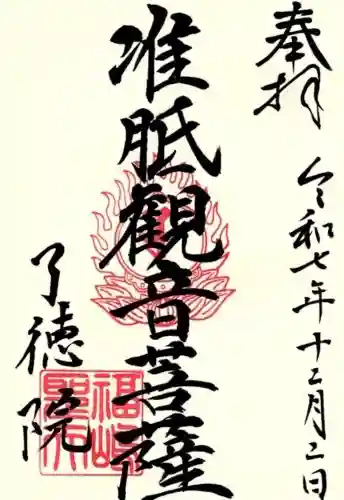 奉拝
令和七年十二月二日
准胝観音菩薩
了徳院